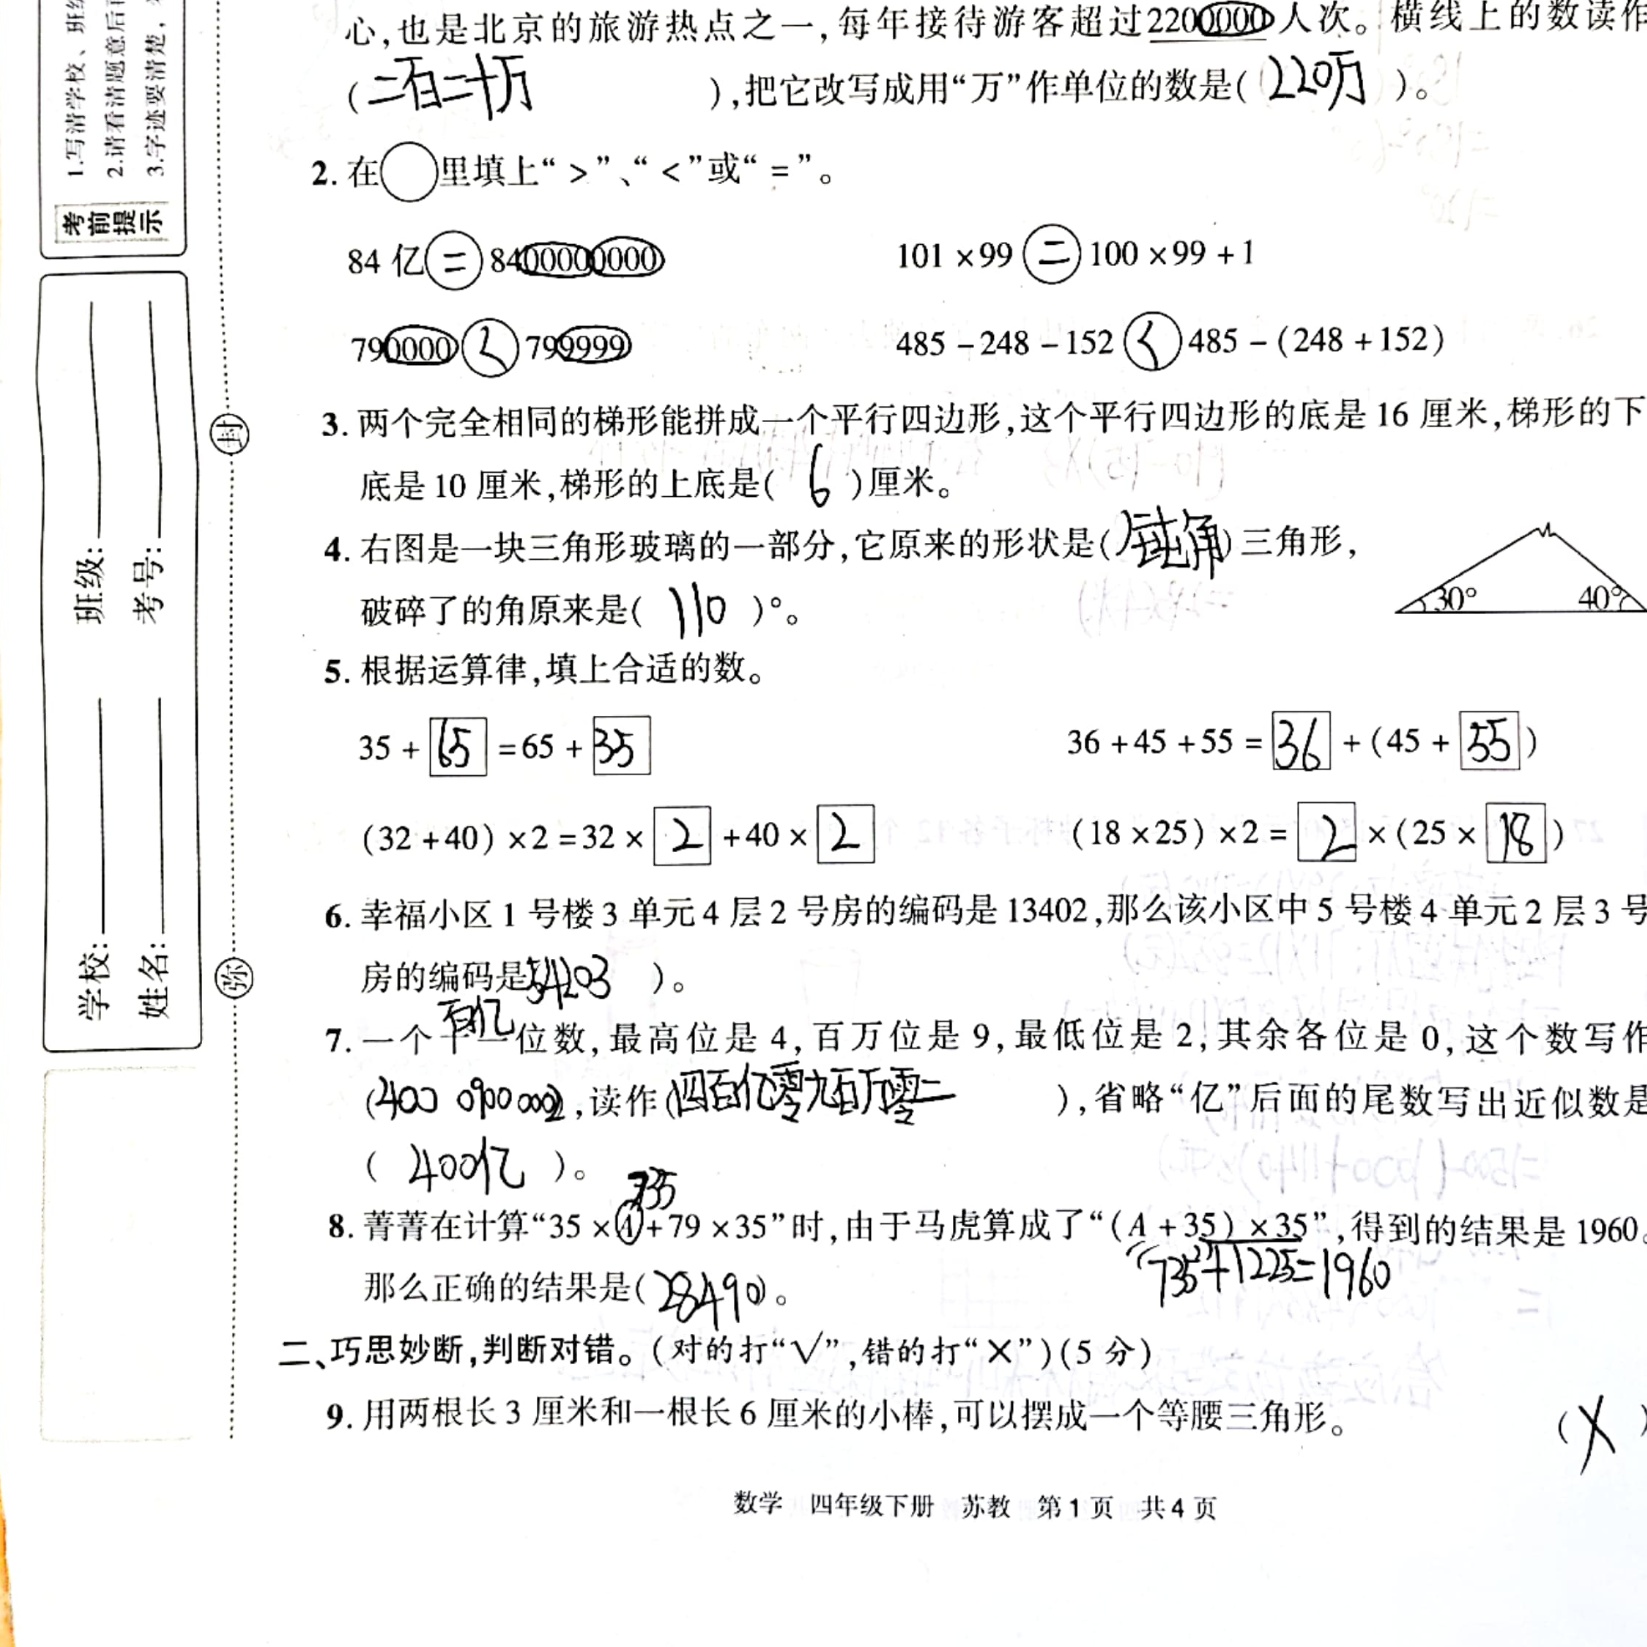 心,也是北京的旅游热点之一,每年接待游客超过2200000人次。横线上的数读作
(二百二十万),把它改写成用“万”作单位的数是(220万)。
2. 在○里填上“>”、“<”或“=”。
84亿=8400000000 101×99=100×99+1
790000<799999 485-248-152<485-(248+152)
3. 两个完全相同的梯形能拼成一个平行四边形,这个平行四边形的底是16厘米,梯形的下
底是10厘米,梯形的上底是(6)厘米。
4. 右图是一块三角形玻璃的一部分,它原来的形状是(钝角)三角形,
破碎了的角原来是(110)°。
30° 40°
5. 根据运算律,填上合适的数。
35+65=65+35 36+45+55=36+(45+55)
(32+40)×2=32×2+40×2 (18×25)×2=2×(25×18)
6. 幸福小区1号楼3单元4层2号房的编码是13402,那么该小区中5号楼4单元2层3号
房的编码是54203)。
百亿
7. 一个十一位数,最高位是4,百万位是9,最低位是2,其余各位是0,这个数写作
(400 0900 0002),读作(四百亿零九百万零二),省略“亿”后面的尾数写出近似数是
(400亿)。
735
8. 菁菁在计算“35×A+79×35”时,由于马虎算成了“(A+35)×35”,得到的结果是1960。
735+1225=1960
那么正确的结果是(28490)。
二、巧思妙断,判断对错。(对的打“√”,错的打“×”)(5分)
9. 用两根长3厘米和一根长6厘米的小棒,可以摆成一个等腰三角形。 (×)
数学 四年级下册 苏教 第1页 共4页
考前提示
1.写清学校、班级
2.请看清题意后再
3.字迹要清楚,
班级:
考号:
学校:
姓名:
封
弥